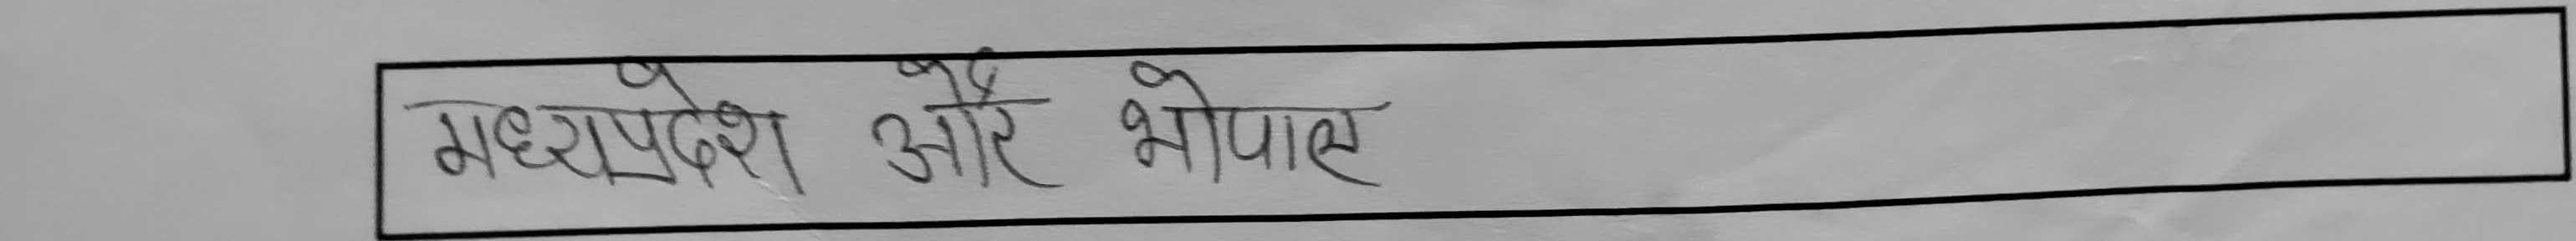 मध्यप्रदेश और भोपाल